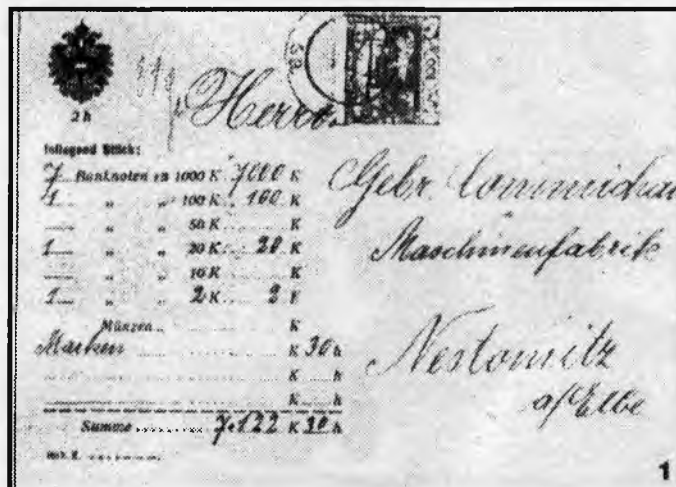 2 h
Herren
Inliegend Stück:
7 Banknoten zu 1000 K 7000 K
1 " " 100 K 100 K
" " 50 K K
1 " " 20 K 20 K
" " 10 K K
1 " " 2 K 2 K
Münzen K
Marken K 30 h
K h
K h
Summe 7.122 K 30 h
Gebr.
Maschinenfabrik
Nestomitz
a/Elbe
1